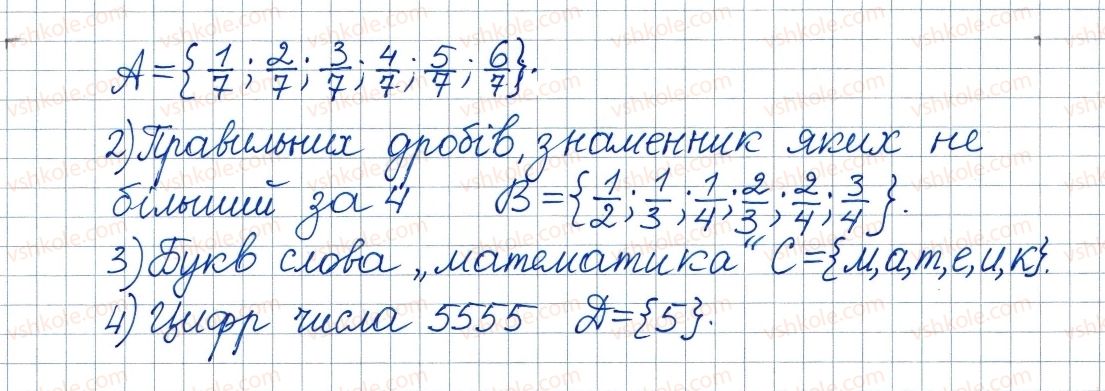 A={1/7; 2/7; 3/7; 4/7; 5/7; 6/7}.
2) Правильних дробів, знаменник яких не
більший за 4 B={1/2; 1/3; 1/4; 2/3; 2/4; 3/4}.
3) Букв слова „математика“ C={м,а,т,е,и,к}.
4) Цифр числа 5555 D={5}.